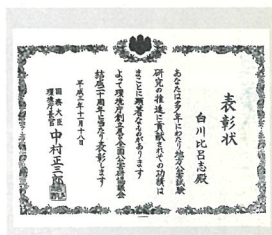 表彰状
白川比呂志殿
あなたは多年にわたり地方公害試験
研究の推進に貢献されその功績は
まことに顕著なものがあります
よって環境庁創立及び全国公害研協議会
結成二十周年に当たり表彰します
平成三年十一月十八日
国務大臣
環境庁長官 中村正三郎